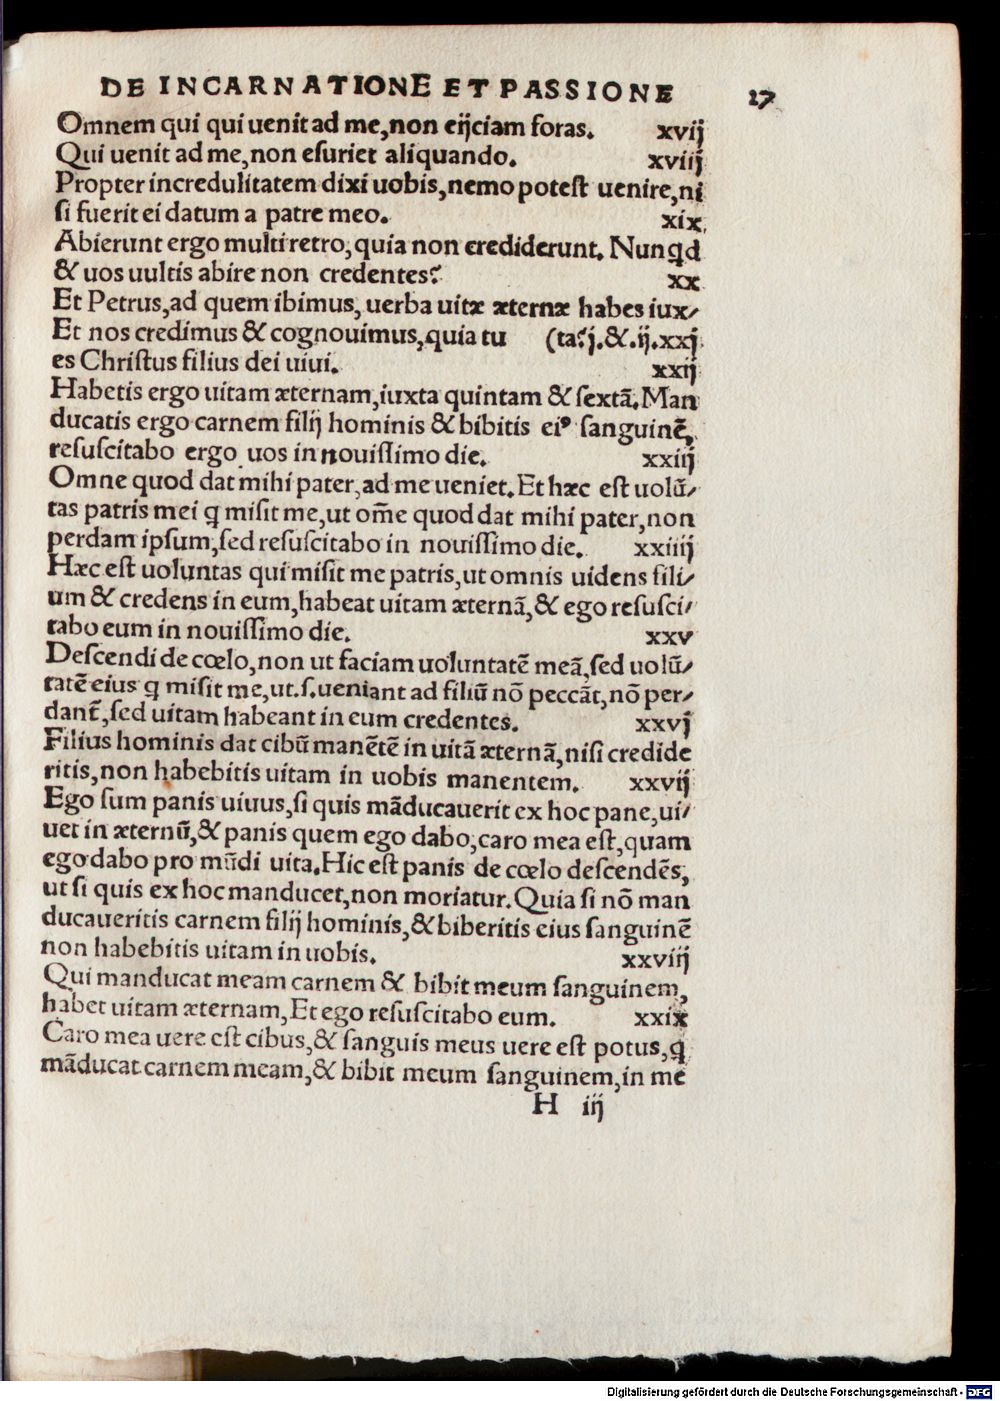 DE INCARNATIONE ET PASSIONE 27
Omnem qui qui uenit ad me,non eijciam foras. xvij
Qui uenit ad me,non eſuriet aliquando. xviij
Propter incredulitatem dixi uobis,nemo poteſt uenire,ni
ſi fuerit ei datum a patre meo. xix
Abierunt ergo multi retro,quia non crediderunt. Nunqd
& uos uultis abire non credentes? xx
Et Petrus,ad quem ibimus, uerba uitæ æternæ habes iux/
Et nos credimus & cognouimus,quia tu (ta.j.&.ij.xxj
es Chriſtus filius dei uiui. xxij
Habetis ergo uitam æternam,iuxta quintam & ſextā.Man
ducatis ergo carnem filij hominis & bibitis eiꝰ ſanguinē,
reſuſcitabo ergo uos in nouiſſimo die. xxiij
Omne quod dat mihi pater,ad me ueniet.Et hæc eſt uolū/
tas patris mei q miſit me,ut om̄e quod dat mihi pater,non
perdam ipſum,ſed reſuſcitabo in nouiſſimo die. xxiiij
Hæc eſt uoluntas qui miſit me patris,ut omnis uidens fili/
um & credens in eum,habeat uitam æternā,& ego reſuſci/
tabo eum in nouiſſimo die. xxv
Deſcendi de cœlo,non ut faciam uoluntatē meā,ſed uolū/
tatē eius q miſit me,ut.ſ.ueniant ad filiū nō peccāt,nō per/
dant̄,ſed uitam habeant in eum credentes. xxvj
Filius hominis dat cibū manētē in uitā æternā,niſi credide
ritis,non habebitis uitam in uobis manentem. xxvij
Ego ſum panis uiuus,ſi quis māducauerit ex hoc pane,ui/
uet in æternū,& panis quem ego dabo,caro mea eſt,quam
ego dabo pro mūdi uita.Hic eſt panis de cœlo deſcendēs,
ut ſi quis ex hoc manducet,non moriatur.Quia ſi nō man
ducaueritis carnem filij hominis,& biberitis eius ſanguinē
non habebitis uitam in uobis. xxviij
Qui manducat meam carnem & bibit meum ſanguinem,
habet uitam æternam,Et ego reſuſcitabo eum. xxix
Caro mea uere eſt cibus,& ſanguis meus uere eſt potus,q
māducat carnem meam,& bibit meum ſanguinem,in me
H iij
Digitalisierung gefördert durch die Deutsche Forschungsgemeinschaft - DFG